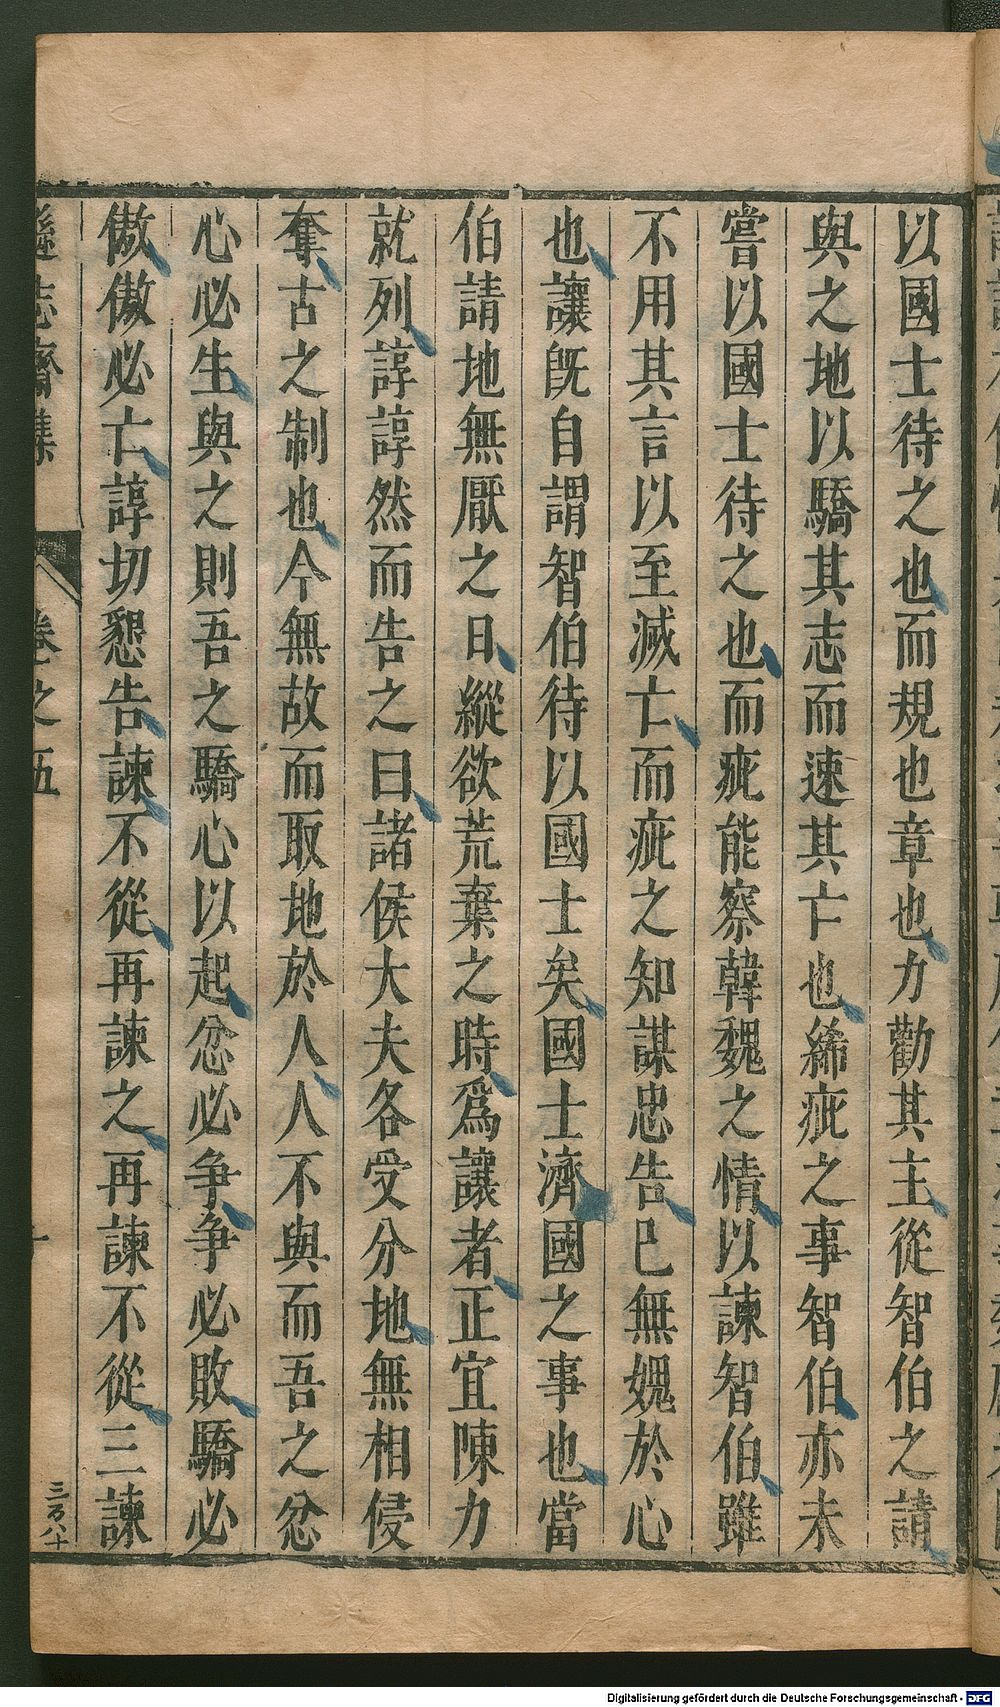 以國士待之也而規也章也力勸其主從智伯之請
與之地以驕其志而速其亡也絺疵之事智伯亦未
嘗以國士待之也而疵能察韓魏之情以諫智伯雖
不用其言以至滅亡而疵之知謀忠告已無媿於心
也讓旣自謂智伯待以國士矣國士濟國之事也當
伯請地無厭之日縱欲荒棄之時爲讓者正宜陳力
就列諄諄然而告之曰諸侯大夫各受分地無相侵
奪古之制也今無故而取地於人人不與而吾之忿
心必生與之則吾之驕心以起忿必争争必敗驕必
傲傲必亡諄切懇告諫不從再諫之再諫不從三諫
遜志齋集 卷之五
三百八十
Digitalisierung gefördert durch die Deutsche Forschungsgemeinschaft - DFG